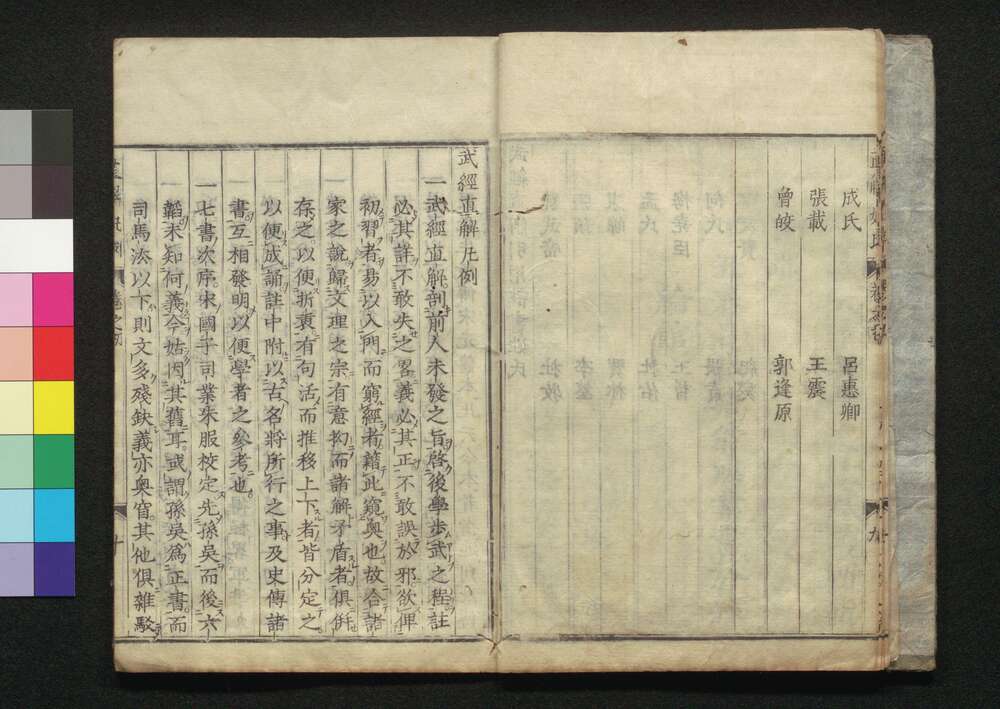 成氏 呂惠卿
張載 王震
曾皎 郭逢原
武經直解凡例
一武經直解剖前人未發之旨啓後學步武之程註
必其詳不敢失之畧義必其正不敢誤於邪欲俾
初習者易以入門而窮經者籍此窺奧也故合諸
家之說歸文理之宗有意拗而諸解矛盾者俱倂
存之以便折衷有句活而推移上下者皆分定之
以便成誦註中附以古名將所行之事及史傳諸
書互相發明以便學者之參考也
一七書次序宋國子司業朱服校定先孫吳而後六
韜未知何義今姑因其舊耳或謂孫吳爲正書而
司馬法以下則文多殘鈌義亦奧窅其他俱雜駁